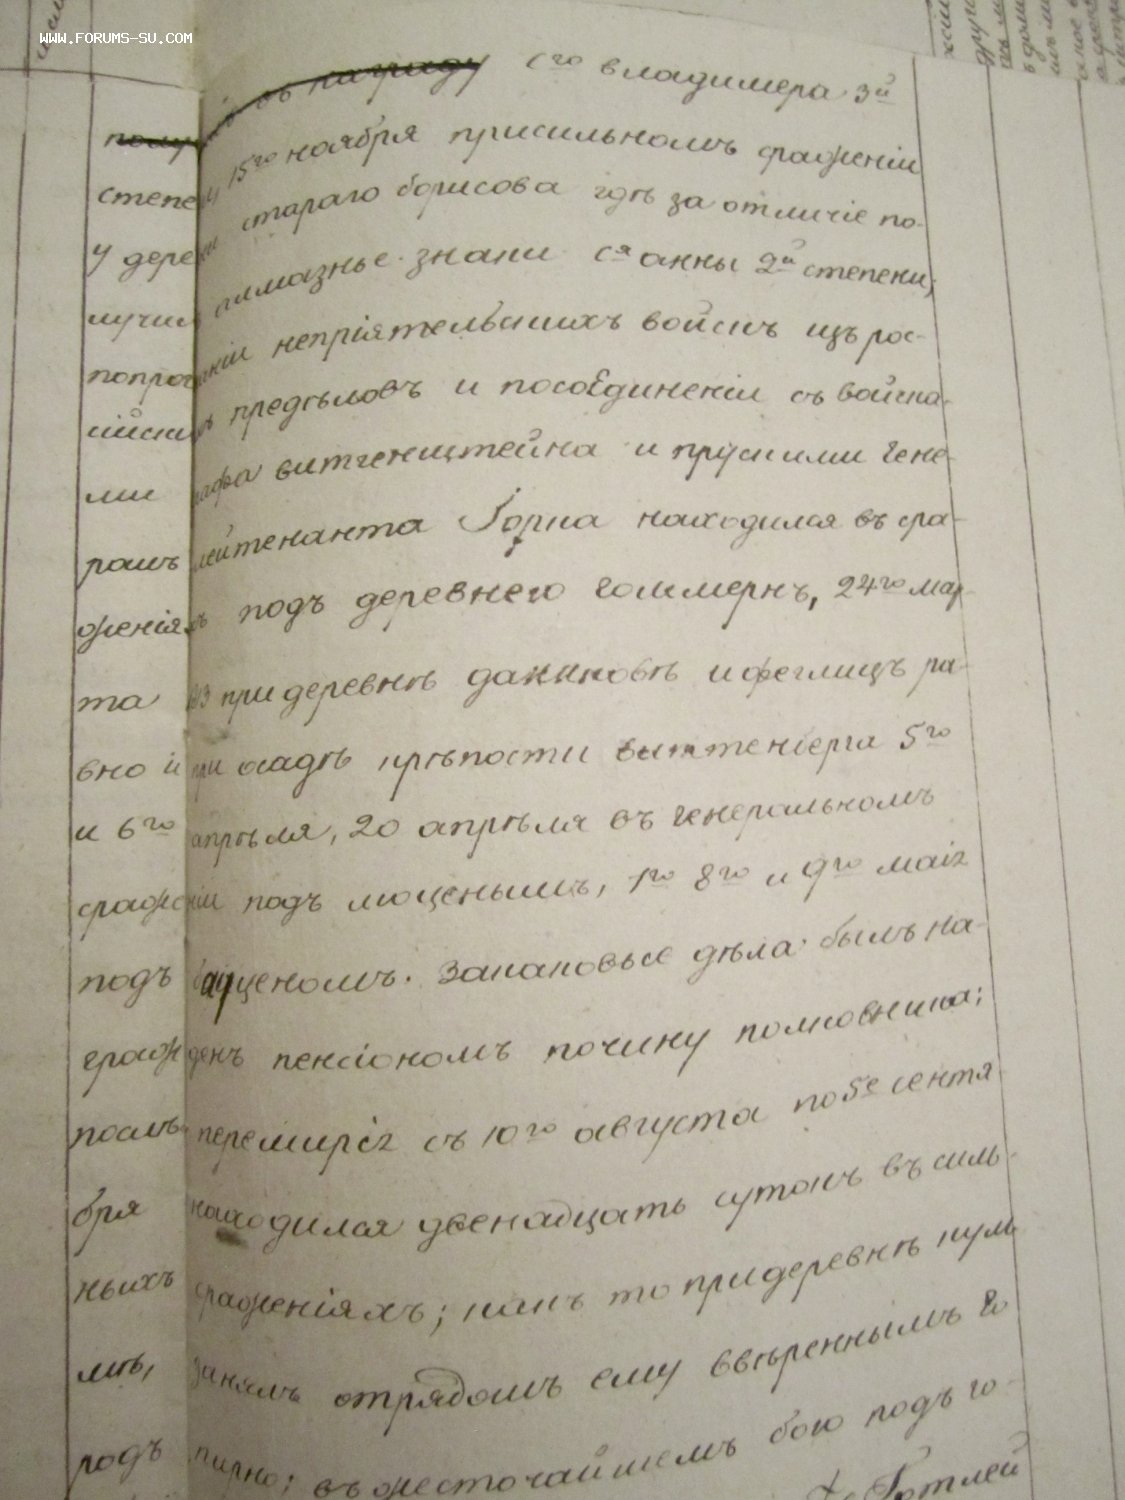 WWW.FORUMS-SU.COM
получ въ награду Сго владимера 3й
степени 15го ноября присильномъ сраженіи
у деревни стараго борисова гдѣ за отличіе по-
лучил алмазные знаки Ся анны 2й степени;
попрогнаніи непріятельскихъ войскъ изъ рос-
сійскихъ предѣловъ и посоединеніи съ войска-
ми графа витгенштейна и прускими гене-
ралъ лейтенанта Іорка находился въ сра-
женіяхъ подъ деревнею гоммернъ, 24го мар-
та 813 при деревнѣ данниковѣ и феглицъ ра-
вно и при осадѣ крѣпости виттенберга 5го
и 6го апрѣля, 20 апрѣля въ генеральномъ
сраженіи подъ люценымъ, 7го 8го и 9го маія
подъ бауценомъ. Закаковые дѣла былъ на-
гражденъ пенсіономъ почину полковника;
послѣ перемирія съ 10го августа по 5е сентя
бря находился двенадцать сутокъ въ силь-
ныхъ сраженіяхъ; какъ то придеревнѣ куль
мѣ, занялъ отрядомъ ему ввѣреннымъ го
родъ пирно; въ жесточайшемъ бою подъ го-
Готлей